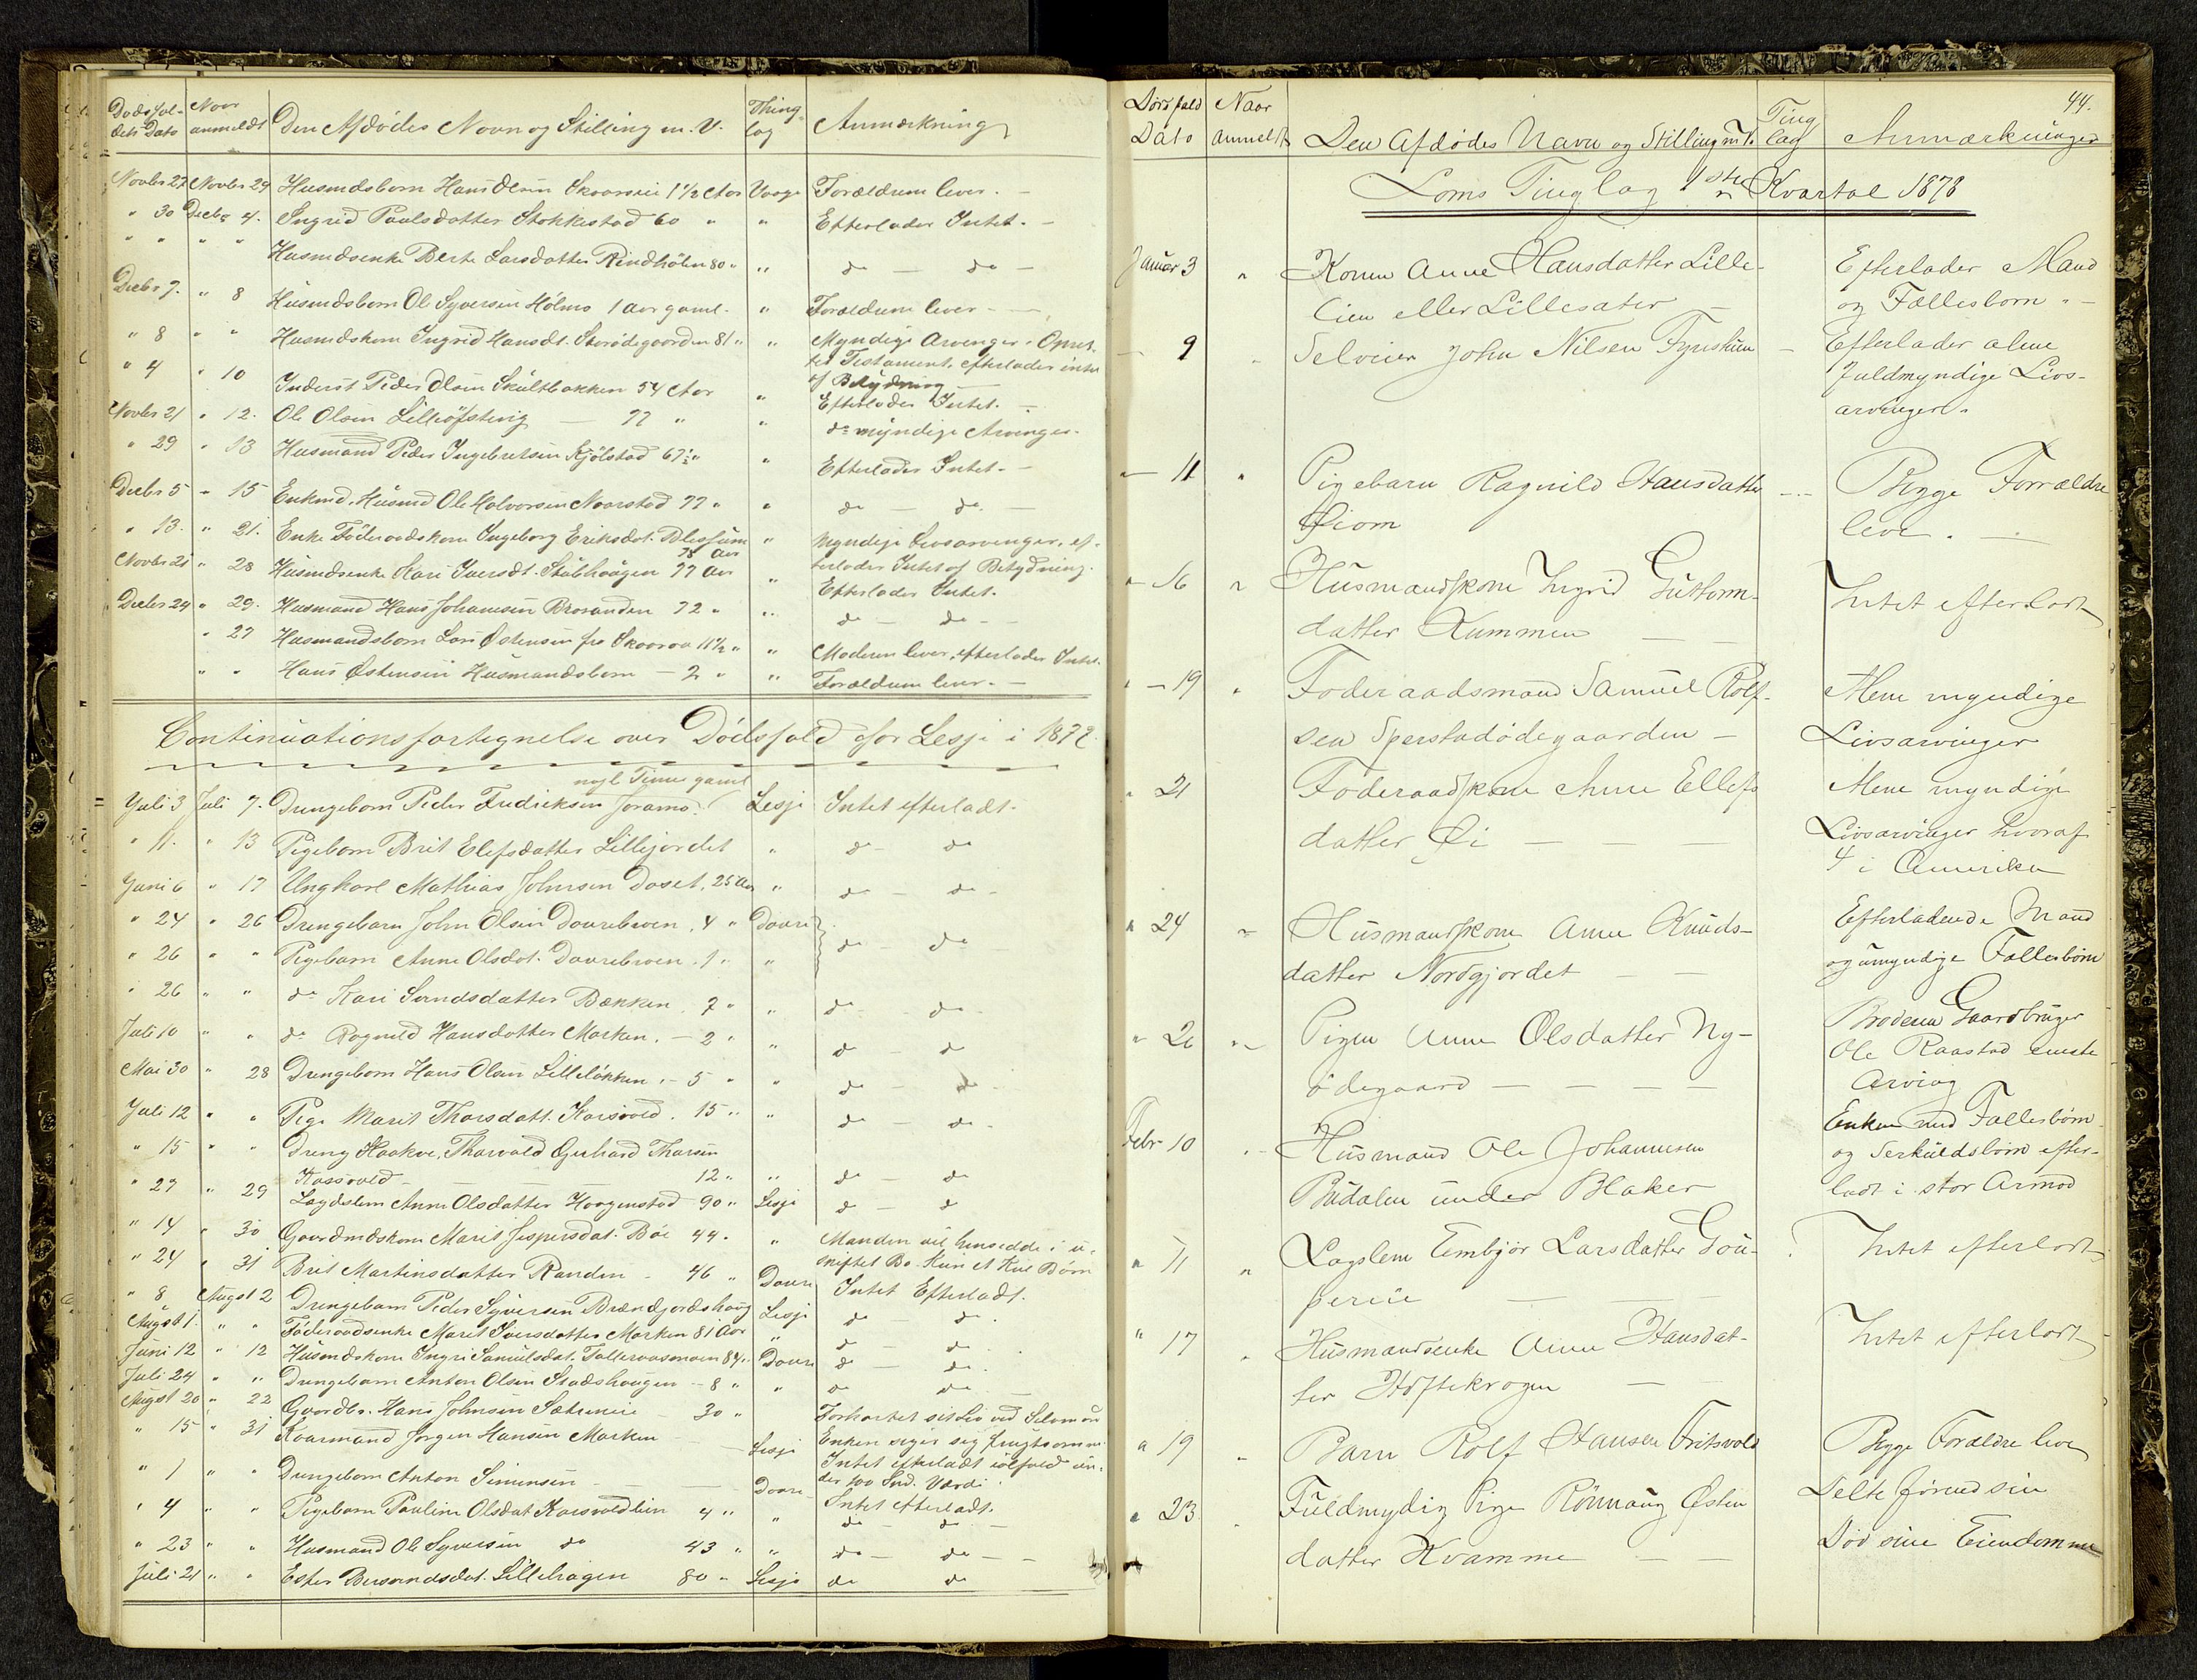 Dødsfal-
dets Dato
Naar
anmeldt
Den Afdødes Navn og Stilling m. V.
Thing-
lag
Anmærkning
Novbr 27 Novbr 29 Husmdsbarn Hans Olsen 1 1/2 Aar Vaage Forældrene lever. -
" 30 Decbr 4. Ingrid Paulsdatter Stokkestad 60 " " Efterlader Intet. -
" " " " Husmdsenke Berte Larsdatter Rindhølen 80 " " do - do -
Decbr 7. " 8 Husmdsbarn Ole Syversen Holmo 1 Aar gaml. " Forældrene lever - -
" 8 " " Husmdskone Ingrid Hansdt. Storødegaarden 81 " " Myndige Arvinger. Opret-
tet Testament, efterlader intet
af Betydning
" 4 " 10 Inderst Peder Olsen Skultbakken 54 Aar " Efterlader Intet. -
Novbr 21 " 12. Ole Olsen - 77 " " do myndige Arvinger.
" 29 " 13 Husmand Peder Ingebretsen Kjølstad 67 1/2 " " Efterlader Intet. -
Decbr 5 " 15 Enkmd. Husmd Ole Halvorsen Naarstad 77 " " do - do. -
" 13. " 21. Enke Föderaadskone Ingeborg Eriksdt. Blessum
78 Aar
" Myndige Livsarvinger, ef-
terlader Intet af Betydning.
Novbr 21 " 28 Husmdsenke Kari Iversdt. Stubhaugen 77 Aar " Efterlader Intet.
Decbr 24 " 29. Husmand Hans Johannesen Brovanden 72 " " do - do -
" 27 Husmandsbarn Lars Østensen fra Skaaraa 11 1/2 " " Moderen lever, efterlader Intet.
" " Hans Østensen Husmandsbarn - 2 " " Forældrene lever. -
Continuationsfortegnelse over Dödsfald for Lesje i 1872.
nogle Timer gaml
Juli 3 Juli 7. Drengebarn Peder Fredriksen Joramo. Lesje Intet efterladt.
" 11. " 13 Pigebarn Brit Elefsdatter Lillejordet " do - do
Juni 6 " 17 Ungkarl Mathias Johnsen Doset, 25 Aar " do - do -
" 24 " 26 Drengebarn John Olsen Dovrebroen, 4 " Dovre
" 26 " " Pigebarn Anne Olsdat. Dovrebroen. 1 " " do - do
" 26 " " do Kari Svendsdatter Bækken. 7 " " do - do -
Juli 10 " " do Ragnild Hansdatter Marken. - 2 " " do - do
Mai 30 " 28 Drengebarn Hans Olsen Lilleløkken. - 5 " " do - do.
Juli 12 " " Pige Marit Thorsdatt. Korsvold. 15 " " do - do -
" 15 " " Dreng Haakon, Thorvald Gerhard Thorsen
Korsvold - 12 " " do - do
" 27 " 29 Lægdslem Anne Olsdatter Haagenstad 90 " Lesje do - do
" 14 " 30 Gaardmdskone Marit Jespersdat. Böe 44. " Manden vil hensidde i u-
skiftet Bo. Kun et Kul Børn
" 24 " 31 Brit Martinsdatter Randen - 46 " Dovre Intet Efterladt.
" 8 Augst 2 Drengebarn Peder Syversen Brændjordshoug Lesje do - do.
Augst 1. " " Föderaadsenke Marit Iversdatter Marken 81 Aar " do - do
Juni 12 " 12 Husmdskone Ingri Samuelsdat. Talleraasmoen 84 " Dovre do - do.
Juli 24 " " Drengebarn Anton Olsen Stadshaugen - 8 " " do do -
Augst 20 " 22 Gaardbr. Hans Johnsen Sætrenie - 30 " Forkortet sit Liv ved Selvmord
" 15 " 31 Kaarmand Jørgen Hansen Marken - Lesje Enken siger sig frugtsomm.
Intet efterladt ialfald un-
der 100 Spd. Værdi.
" 1 " " Drengebarn Anton Simensen - Dovre Intet efterladt.
" 4 " " Pigebarn Pauline Olsdat Korsvoldlien 4 " " do - do -
" 23 " " Husmand Ole Syversen do 43 " " do - do - -
Juli 21 " " Ester Lillehagen 80 " Lesje do do
44.
Dødsfald
Dato
Naar
anmeldt
Den Afdødes Navn og Stilling m.V.
Ting
lag
Anmærkninger
Loms Tinglag 1ste Kvartal 1878
Januar 3 " Konen Anne Hansdatter Lille-
lien eller Lillesæter -
Efterlader Mand
og Fællesbørn. -
- 9 Selveier John Nilsen -
Efterlader alene
fuldmyndige Livs-
arvinger.
" - 11 " Pigebarn Ragnild Hansdatter - . -
Øiom
Begge Forældre
leve. -
" 16 " Husmandskone Ingrid Guttorm-
datter Kummen - -
Intet efterladt
" - 19 " Foderaadsmand Samuel Rolf-
sen Sperstadødegaarden -
Alene myndige
Livsarvinger
" 21 Føderaadskone Anne Ellefs
datter Øi - - -
Alene myndige
Livsarvinger hvoraf
4 i Amerika
" 24 " Husmandskone Anne Knuds-
datter Nordgjordet - -
Efterladende Mand
og umyndige Fællesbørn
" 26 " Pigen Anne Olsdatter Ny-
ødegaard - - - -
Broderen Gaardbruger
Ole Raastad eneste
Arving
Febr 10 " Husmand Ole Johannesen
Budalen under Blaker
Enken med Fællesbørn
og Serkuldsbørn efter-
ladt i stor Armod
" 11 " Lagslem Embjør Larsdatter Gou-
perie - - -
Intet efterladt
" 17 " Husmandsenke Anne Hansdat-
ter Høftekrogen - -
Intet efterladt
" 19 " Barn Rolf Hansen Fritsvold
Begge Forældre leve
" 23 " Fuldmydig Pige Rønnaug Østen
datter Kvamme - -
Delte forend sin
Død sine Eiendomme